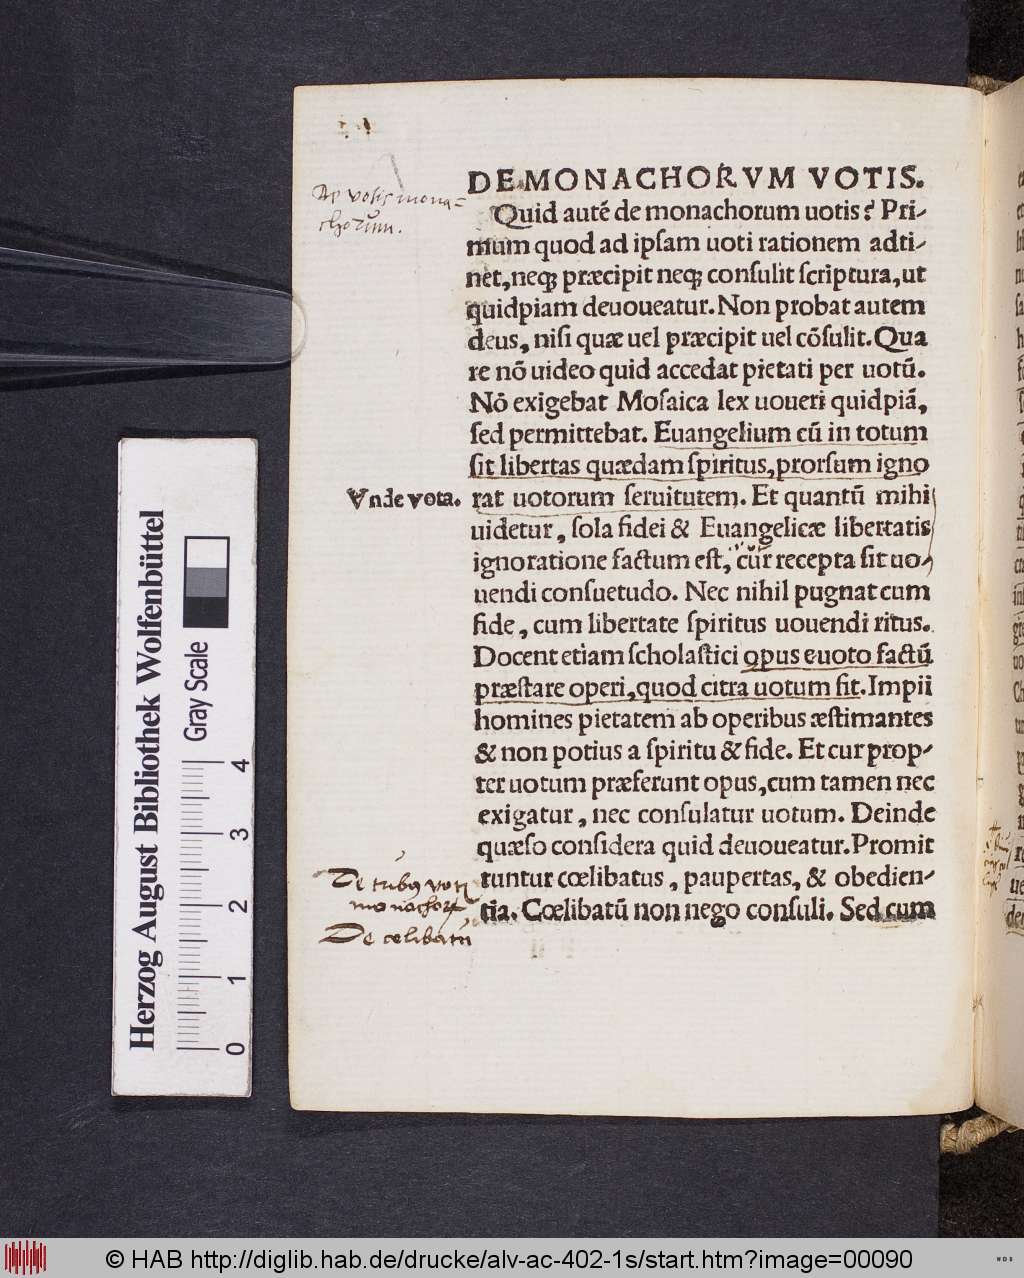 DE MONACHORVM VOTIS.
De votis mona=
chorum.
Quid autē de monachorum uotis? Pri-
mum quod ad ipsam uoti rationem adti-
net, neqꝫ præcipit neqꝫ consulit scriptura, ut
quidpiam deuoueatur. Non probat autem
deus, nisi quæ uel præcipit uel cōsulit. Qua
re nō uideo quid accedat pietati per uotū.
Nō exigebat Mosaica lex uoueri quidpiā,
sed permittebat. Euangelium cū in totum
sit libertas quædam spiritus, prorsum igno
Vnde vota.
rat uotorum seruitutem. Et quantū mihi
uidetur, sola fidei & Euangelicæ libertatis
ignoratione factum est, cur recepta sit uo-
uendi consuetudo. Nec nihil pugnat cum
fide, cum libertate spiritus uouendi ritus.
Docent etiam scholastici opus e uoto factū
præstare operi, quod citra uotum fit. Impii
homines pietatem ab operibus æstimantes
& non potius a spiritu & fide. Et cur prop-
ter uotum præferunt opus, cum tamen nec
exigatur, nec consulatur uotum. Deinde
quæso considera quid deuoueatur. Promit
tuntur cœlibatus, paupertas, & obedien-
tia. Cœlibatū non nego consuli. Sed cum
De tribꝰ voti
monachorꝝ
De celibatu
Herzog August Bibliothek Wolfenbüttel
Gray Scale
0 1 2 3 4
© HAB http://diglib.hab.de/drucke/alv-ac-402-1s/start.htm?image=00090